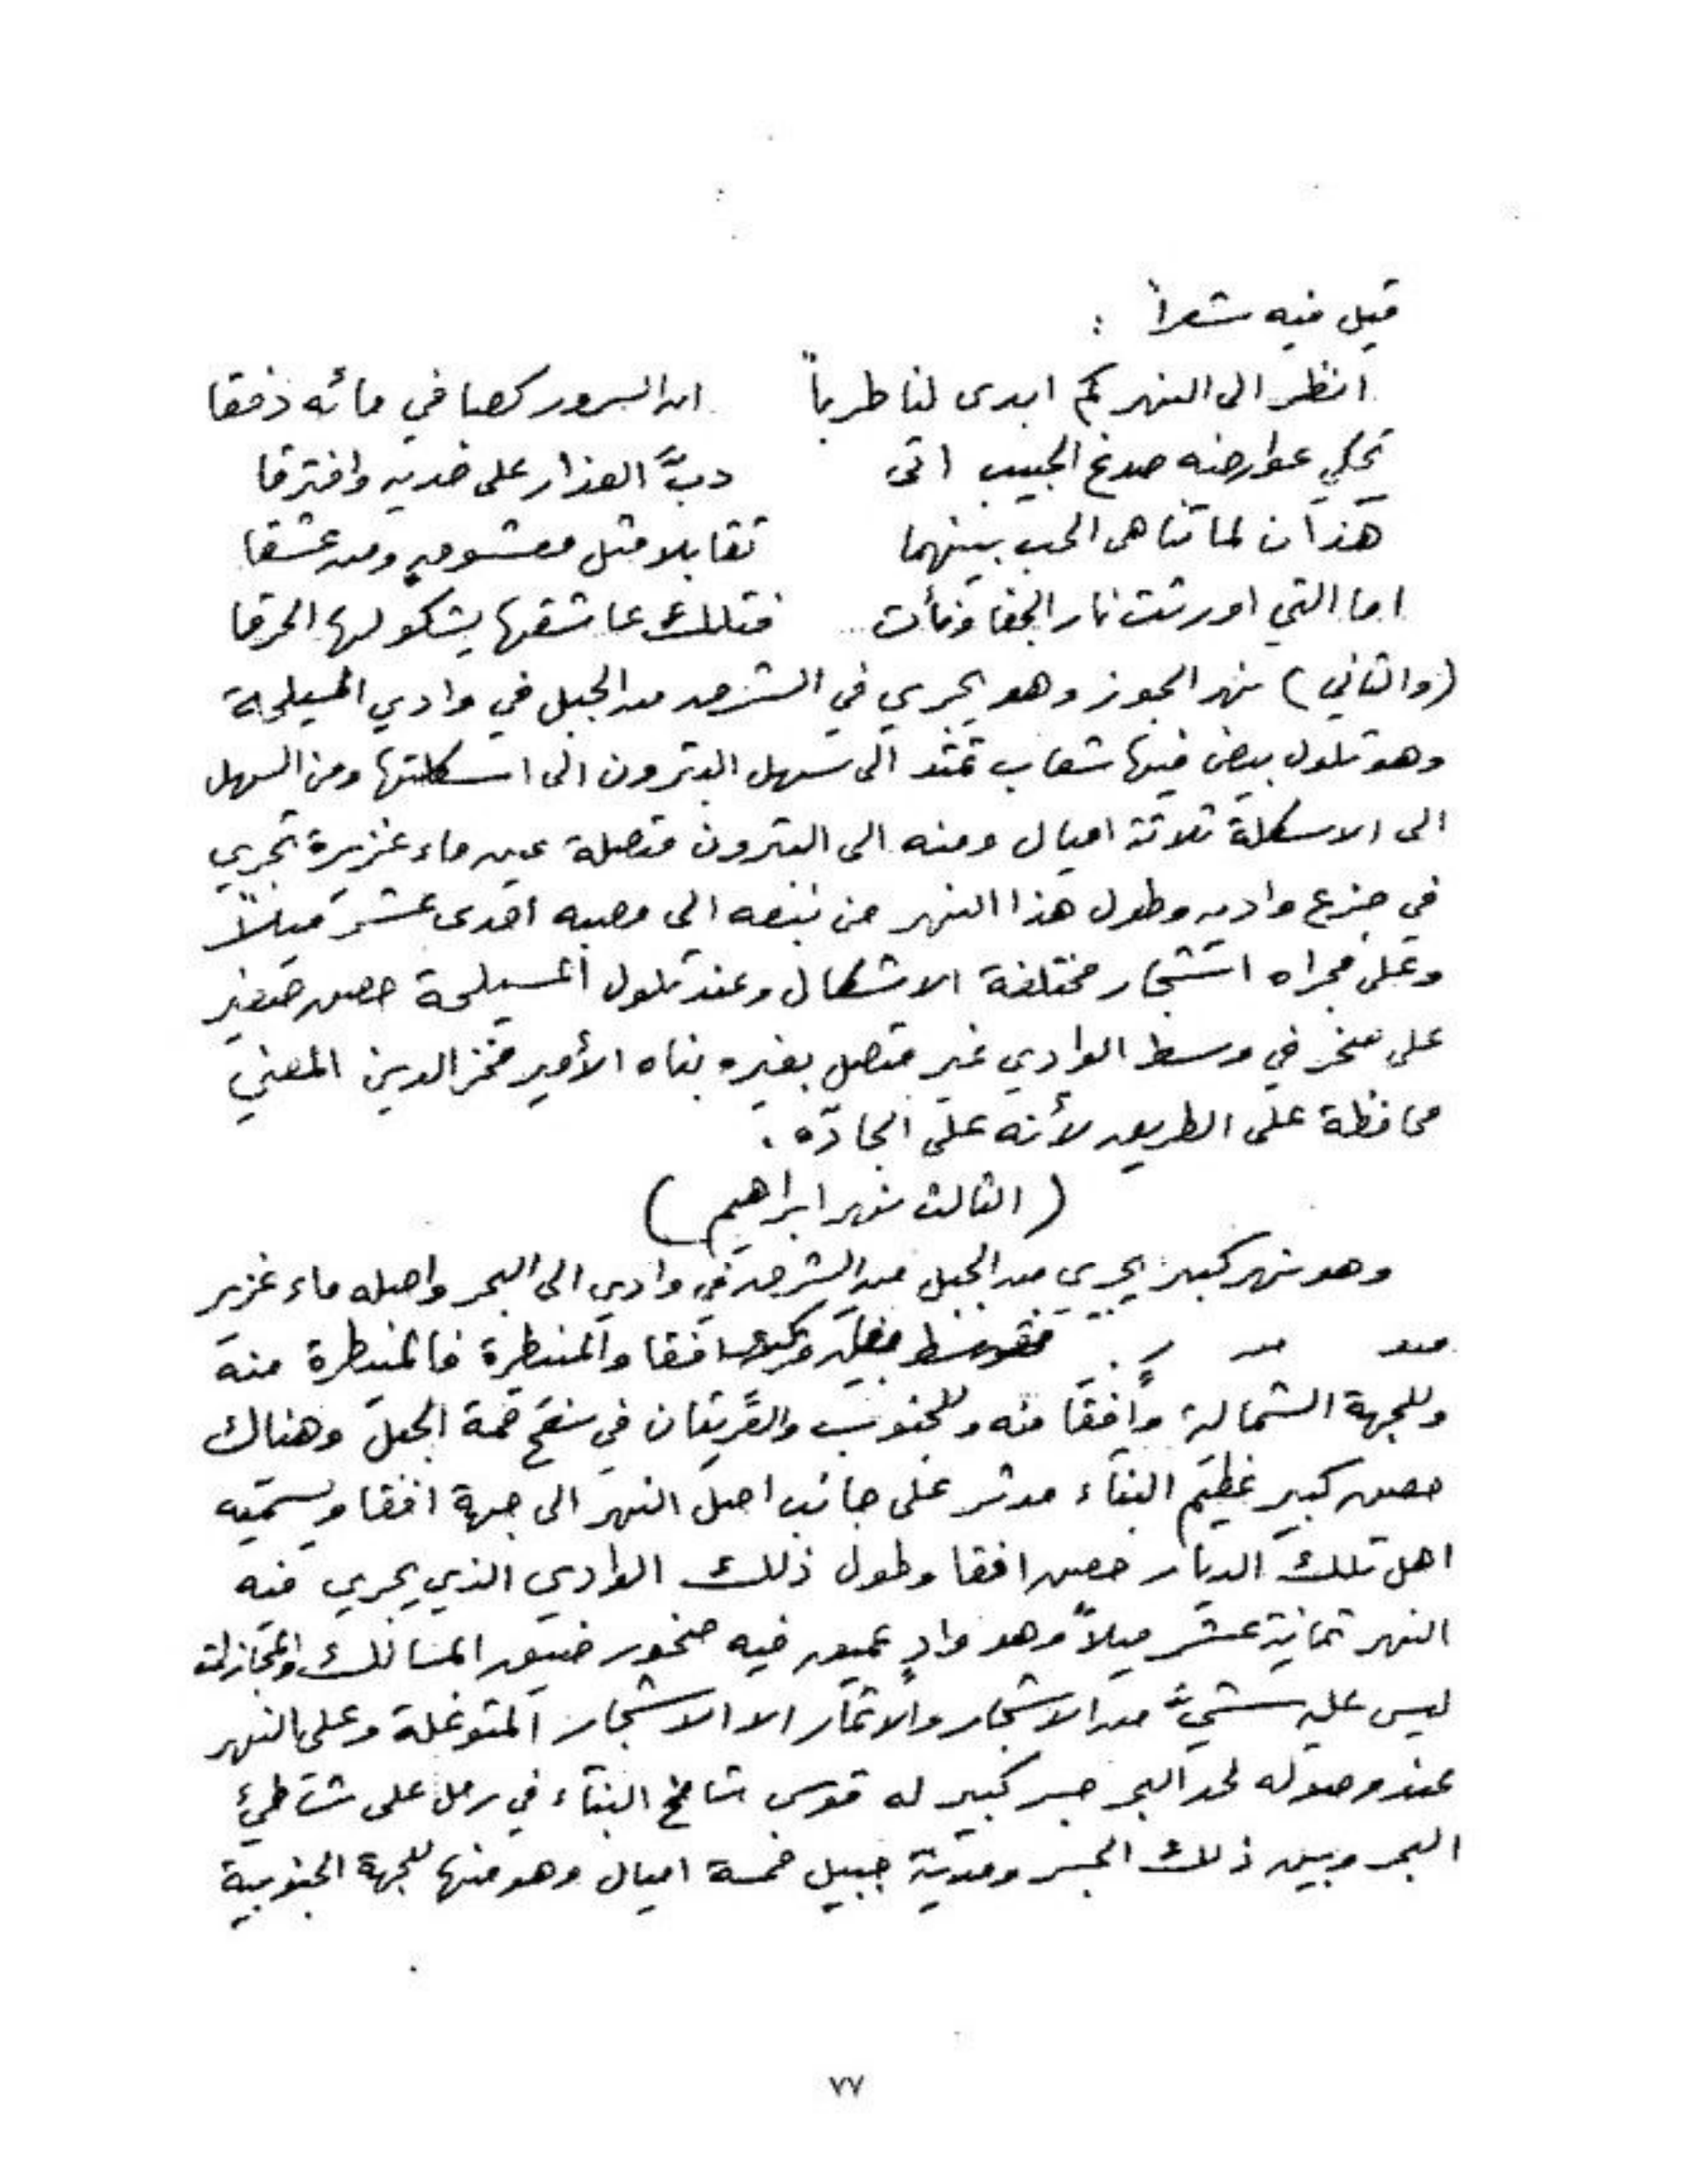 قيل فيه شعراً :
انظر الى النهر كم ابدى لنا طرباً ان السرور كصبا في مائه دفقا
تحكي عوارضه صدغ الحبيب اتى دبَّ العذار على خديه وافترقا
هذان لما تناهى الحب بينهما تقابلا مثل معشوق ومن عشقا
اما التي اورثت نار الجفا ونأت فتلك عاشقها يشكو لها الحرقا
(والثاني) نهر الجوز وهو يجري في الشرق من الجبل في وادي المسيلحة
وهو تلول بيض فيها شعاب تمتد الى سهل البترون الى اسكلتها ومن السهل
الى الاسكلة ثلاثة اميال ومنه الى البترون متصلة عين ماء غزيرة تجري
في جزع واديه وطول هذا النهر من نبعه الى مصبه احدى عشر ميلاً
وعلى مجراه اشجار مختلفة الاشكال وعند تلول المسيلحة حصن صغير
على صخر في وسط الوادي غير متصل بغيره بناه الأمير فخر الدين المعني
محافظة على الطريق لأنه على الجادّه .
(الثالث نهر ابراهيم)
وهو نهر كبير يجري من الجبل من الشرق في وادي الى البحر واصله ماء غزير
من من افقا والمنيطرة فالمنيطرة منه
وللجهة الشمالية وافقا منه وللجنوب والقريتان في سفح قمة الجبل وهناك
حصن كبير عظيم البناء مدثر على جانب اصل النهر الى جهة افقا ويسميه
اهل تلك الديار حصن افقا وطول ذلك الوادي الذي يجري فيه
النهر ثمانية عشر ميلاً وهو وادٍ عميق فيه صخور ضيق المسالك والمجازات
ليس عليه شيءٌ من الاشجار والاثمار الا الاشجار المتوغلة وعلى النهر
عند وصوله لحد البحر جسر كبير له قوس شامخ البناء في رمل على شاطئ
البحر وبين ذلك الجسر ومدينة جبيل خمسة اميال وهو منها للجهة الجنوبية
٧٧